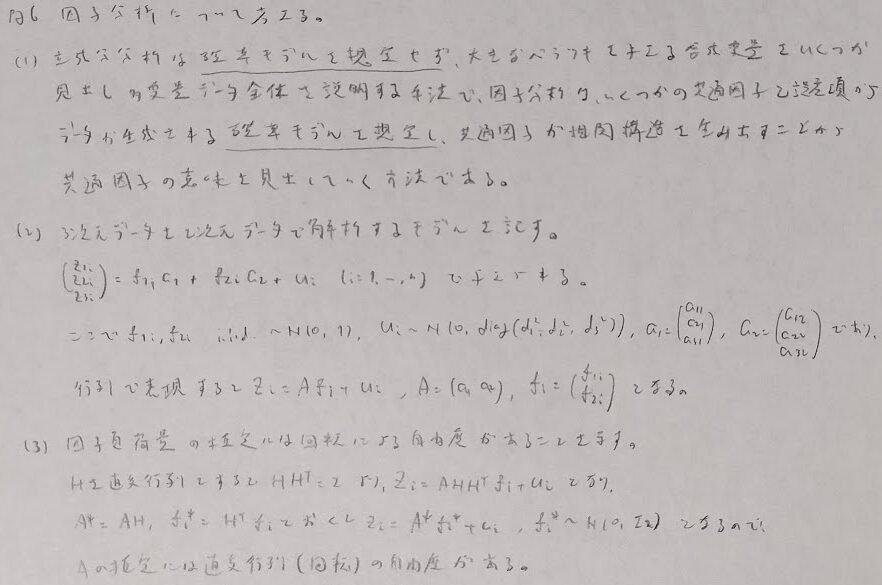 問6 因子分析について考える。
(1) 主成分分析は確率モデルを想定せず、大きなベラツキを与える合成変量をいくつか
見出し多変量データ全体を説明する手法で、因子分析は、いくつかの共通因子と誤差項から
データが生成される確率モデルを想定し、共通因子が相関構造を生み出すことから
共通因子の意味を見出していく方法である。
(2) 3次元データを2次元データで解析するモデルを記す。
(z1i z2i z3i) = f1i a1 + f2i a2 + ui (i=1, …, n) で与えられる。
ここで f1i, f2i i.i.d. ~ N(0, 1), ui ~ N(0, diag(d1², d2², d3²)), a1=(a11 a21 a31), a2=(a12 a22 a32) であり、
行列で表現すると zi = Afi + ui, A = (a1 a2), fi = (f1i f2i) となる。
(3) 因子負荷量の推定には回転による自由度があることを示す。
Hを直交行列とすると HHᵀ = I より, zi = AHHᵀfi + ui となり,
A* = AH, fi* = Hᵀfi とおくと zi = A*fi* + ui, fi* ~ N(0, I2) となるので,
Aの推定には直交行列(回転)の自由度がある。